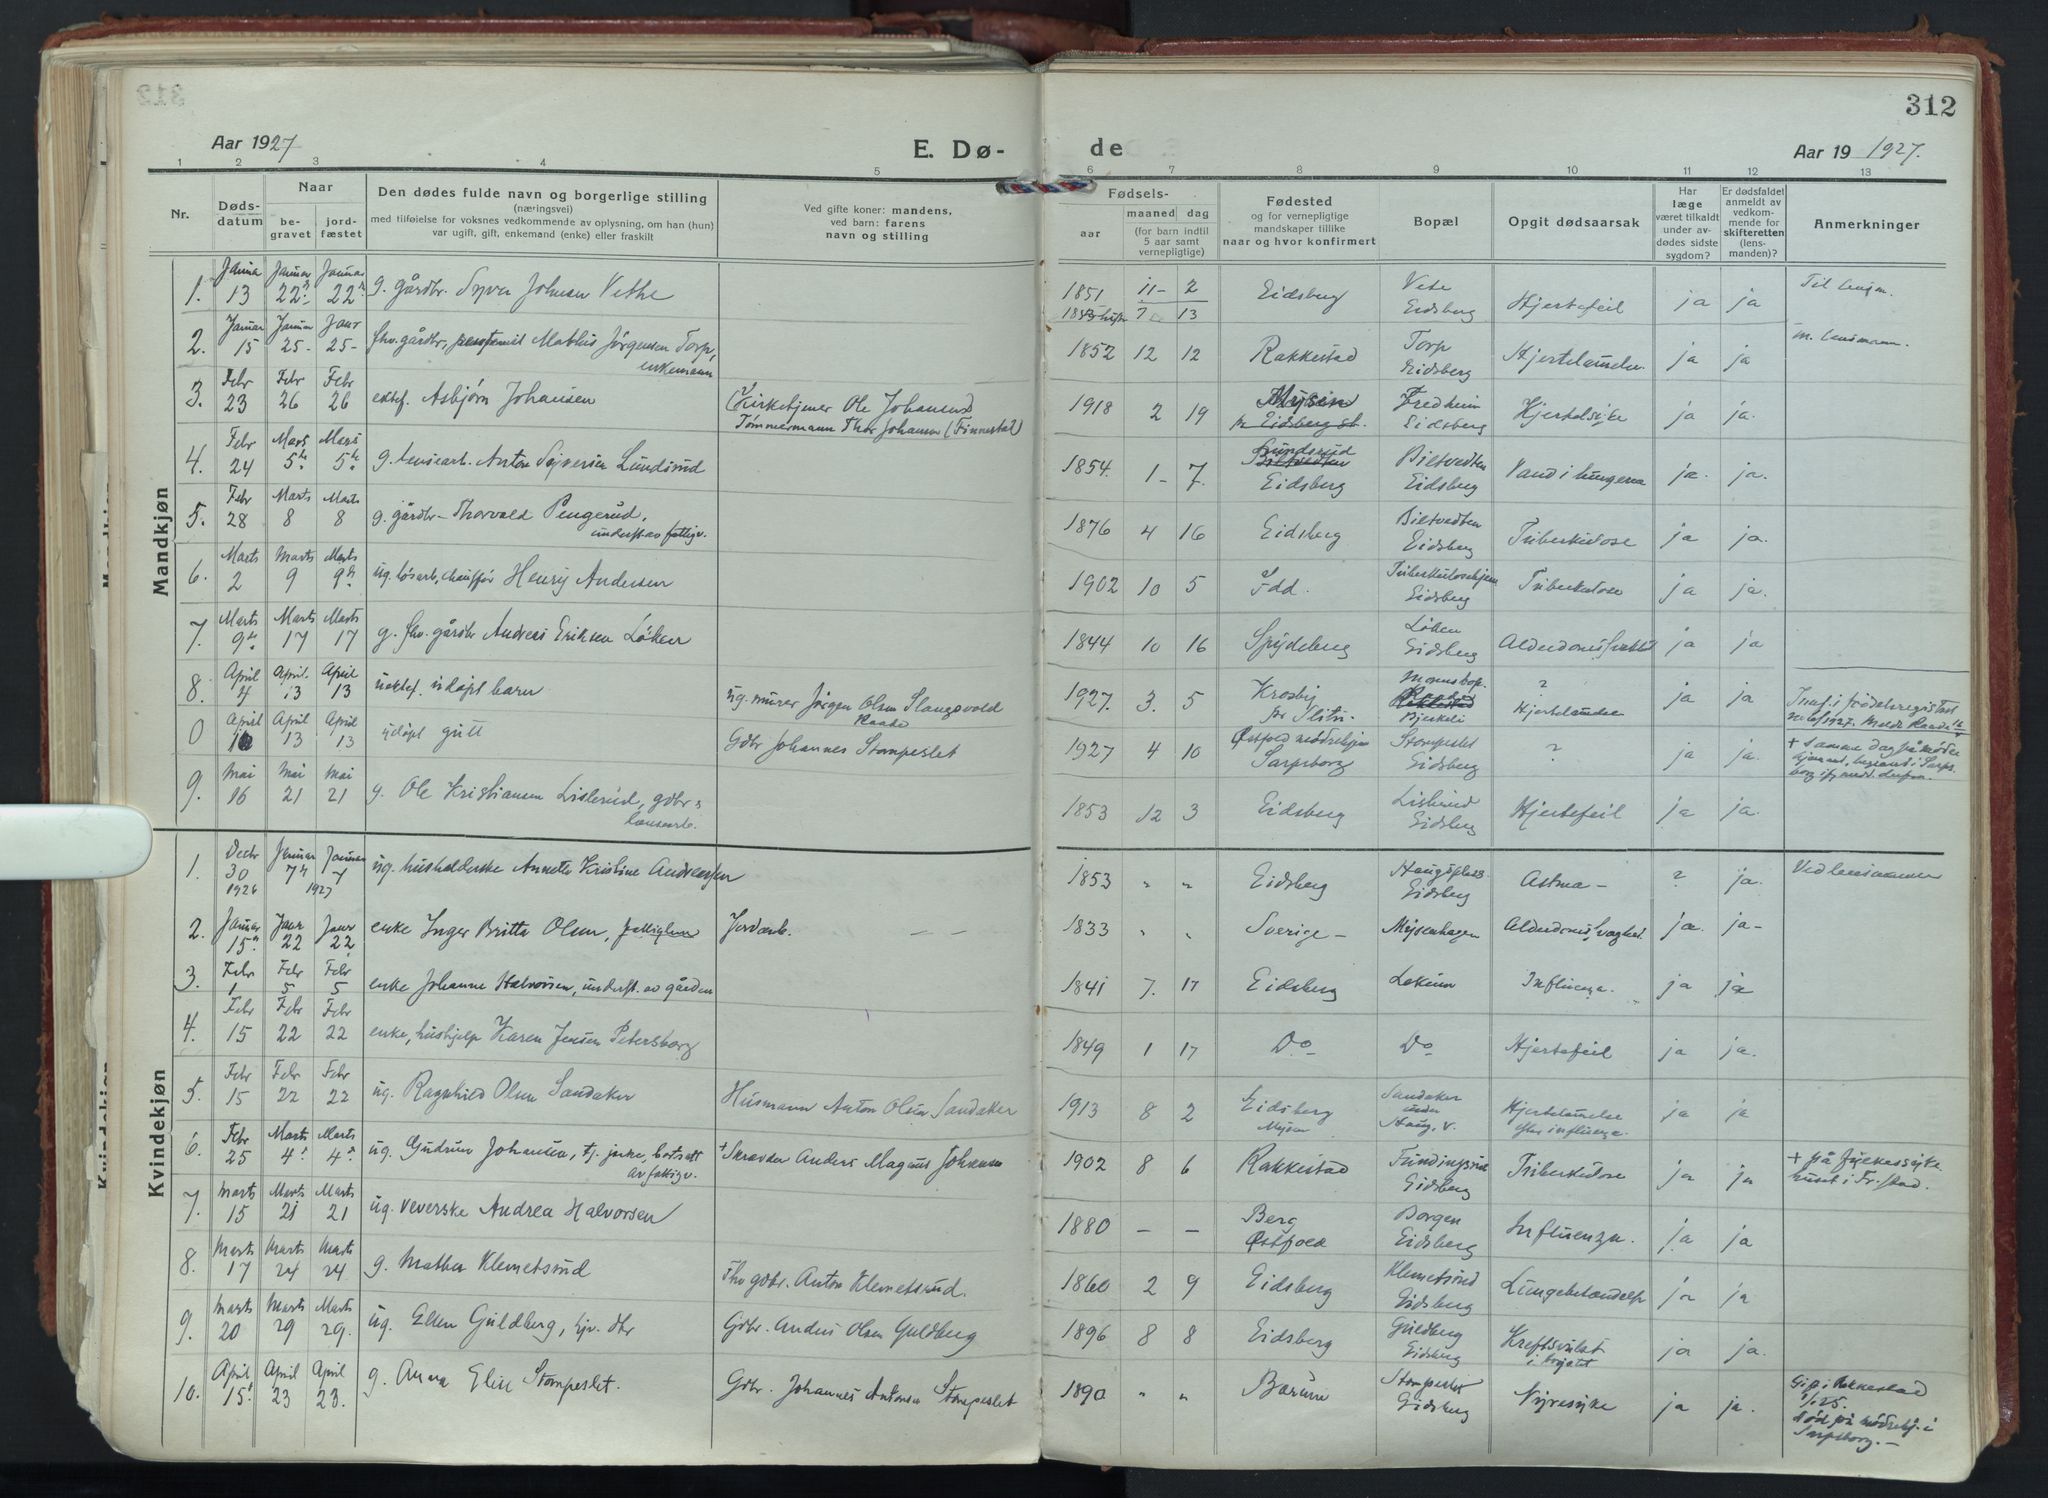 312
Aar 1927
E. Dø-
de
Aar 19 1927.
1 2 3 4 5 6 7 8 9 10 11 12 13
Nr.
Døds-
datum
Naar
be-
gravet
jord-
fæstet
Den dødes fulde navn og borgerlige stilling
(næringsvei)
med tilføielse for voksnes vedkommende av oplysning, om han (hun)
var ugift, gift, enkemand (enke) eller fraskilt
Ved gifte koner: mandens,
ved barn: farens
navn og stilling
Fødsels-
aar
maaned dag
(for barn indtil
5 aar samt
vernepligtige)
Fødested
og for vernepligtige
mandskaper tillike
naar og hvor konfirmert
Bopæl
Opgit dødsaarsak
Har
læge
været tilkaldt
under av-
dødes sidste
sygdom?
Er dødsfaldet
anmeldt av
vedkom-
mende for
skifteretten
(lens-
manden)?
Anmerkninger
Mandkjøn
1. Januar 13 Januar 22 Januar 22 g. gårdbr. Syver Johnsen Vethe 1851 11 2 Eidsberg Vete Eidsberg Hjertefeil ja ja
7 13
2. Januar 15 Januar 25 Januar 25 fhv. gårdbr. Mathis Jørgensen Torp, enkemann 1852 12 12 Rakkestad Torp Eidsberg Hjertelammelse ja ja m. lensmann.
3. Febr 23 Febr 26 Febr 26 ektef. Asbjørn Johansen Kirketjener Ole Johansens
Tømmermann Thor Johansen 1918 2 19 Mysen pr Eidsberg st. Fredheim Eidsberg Hjertesyke ja ja.
4. Febr 24 Mars 5 Mars 5 g. Anton Syversen Lundsrud 1854. 1 7. Lundsrud Eidsberg Biltvedten Eidsberg Vand i lungerne ja. ja.
5. Febr 28 Marts 8 Marts 8 g. gårdbr Thorvald Pengerud, underst. av fattigv. 1876 4 16 Eidsberg Biltvedten Eidsberg Tuberkulose ja ja.
6. Marts 2 Marts 9 Marts 9 ug. løsarb., chauffør Henry Andersen 1902 10 5 Idd. Tuberkulosehjem Eidsberg Tuberkulose ja ja.
7. Marts 9 Marts 17 Marts 17 g. fhv. gårdbr Andreas Eriksen Løken 1844 10 16 Spydeberg Løken Eidsberg Alderdomssvakhet ja ja
8. April 4 April 13 April 13 uektef. udøpt barn ug. murer Jørgen Olsen Slangsvold Raade 1927. 3. 5 Krosby pr Slitu Bjerkeli ? Hjertelammelse ja ja
0 April 10 April 13 April 13 udøpt gutt Gdbr Johannes Stompeslet 1927 4 10 Østfold mødrehjem Sarpsborg Stompeslet Eidsberg ? ja ja. + samme dag på mødre
9. Mai 16 Mai 21 Mai 21 g. Ole Kristiansen Lislerud, gdbr 1853 12 3 Eidsberg Lislerud Eidsberg Hjertefeil ja ja.
Kvindekjøn
1. Decbr 30 1926 Januar 7 Januar 7 1927 ug. husholderske Annette Kristine Andreassen 1853 " " Eidsberg Haugsplass Eidsberg Astma ? ja. Ved lensmannen
2. Januar 15 Janr 22 Janr 22 enke Inger Britta Olsen, fattiglem Jordarb. 1833 " " Sverige Mysenhagen Alderdomssvaghet. ja. ja
3. Febr 1 Febr 5 Febr 5 enke Johanne Halvorsen, underst. av gården 1841 7. 17 Eidsberg Influenza. ja ja
4. Febr 15 Febr 22 Febr 22 enke, hushjelp Karen Jensen Petersborg 1849 1 17 Do Do Hjertefeil ja ja.
5. Febr 15 Febr 22 Febr 22 ug. Ragnhild Olsen Sandaker Husmann Anton Olsen Sandaker 1913 8 2 Eidsberg Mysen Sandaker under Haug. v. Hjertelammelse efter influenza. ja ja
6. Febr 25 Marts 4 Marts 4 ug. Gudrun Johansen, tj. pike, bortsatt av fattigv. + Skredder Anders Magnus Johansen 1902 8 6 Rakkestad Fundingsrud Eidsberg Tuberkulose ja ja + på fylkessyke
huset i Fr.stad.
7. Marts 15 Marts 21 Marts 21 ug. veverske Andrea Halvorsen 1880 — — Berg Østfold Borgen Eidsberg Influenza. ja ja
8. Marts 17 Marts 24 Marts 24 g. Mathea Klemetsrud Fhv gdbr. Anton Klemetsrud. 1860 2 9 Eidsberg Klemetsrud Eidsberg Lungebetændelse ja ja
9. Marts 20 Marts 29 Marts 29. ug. Ellen Guldberg, hjv. dtr Gdbr. Andreas Olsen Guldberg 1896 8 8 Eidsberg Guldberg Eidsberg Kreftsvulst i brystet ja ja.
10. April 15 April 23 April 23. g. Anna Elise Stompeslet. Gdbr. Johannes Antonsen Stompeslet 1890 " " Bærum Stompeslet Eidsberg Nyresyke ja ja. Gift i Rakkestad
1/1 25.
død på mødrehj. i
Sarpsborg.